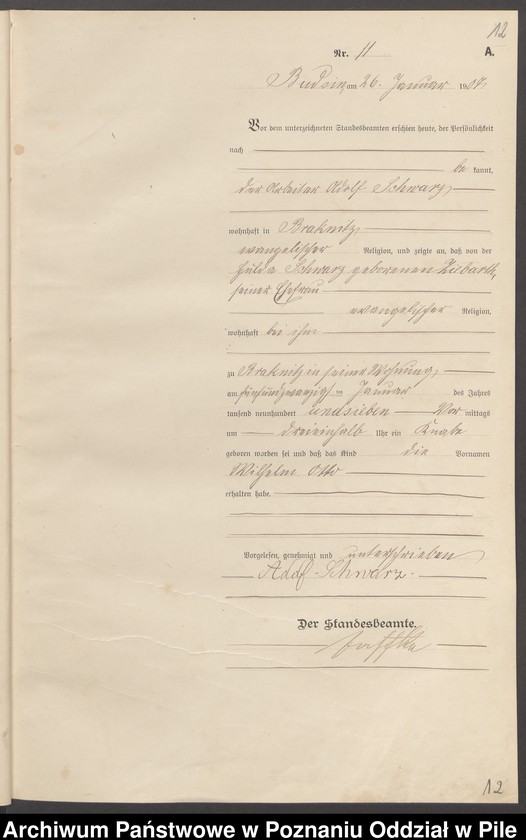 12
Nr. 11 A.
Budsin, am 26. Januar 1907.
Vor dem unterzeichneten Standesbeamten erschien heute, der Persönlichkeit
nach
be kannt,
der Arbeiter Adolf Schwarz,
wohnhaft in Braknitz
evangelischer Religion, und zeigte an, daß von der
Hulda Schwarz geborenen Zibarth,
seiner Ehefrau
evangelischer Religion,
wohnhaft bei ihm
zu Braknitz in seiner Wohnung,
am fünfundzwanzigsten Januar des Jahres
tausend neunhundert und sieben Vor mittags
um dreieinhalb Uhr ein Knabe
geboren worden sei und daß das Kind die Vornamen
Wilhelm Otto
erhalten habe.
Vorgelesen, genehmigt und unterschrieben
Adolf Schwarz.
Der Standesbeamte.
12
Archiwum Państwowe w Poznaniu Oddział w Pile